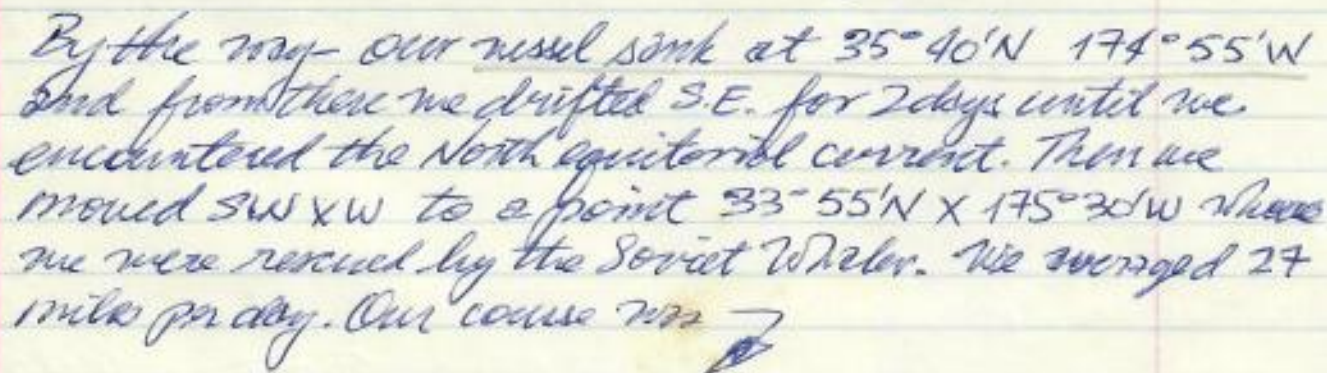 By the way – our vessel sank at 35° 40'N 174° 55'W
and from there we drifted S.E. for 2 days until we
encountered the North equitorial current. Then we
moved SW x W to a point 33° 55'N x 175° 30'W where
we were rescued by the Soviet Whaler. We averaged 27
miles per day. Our course was